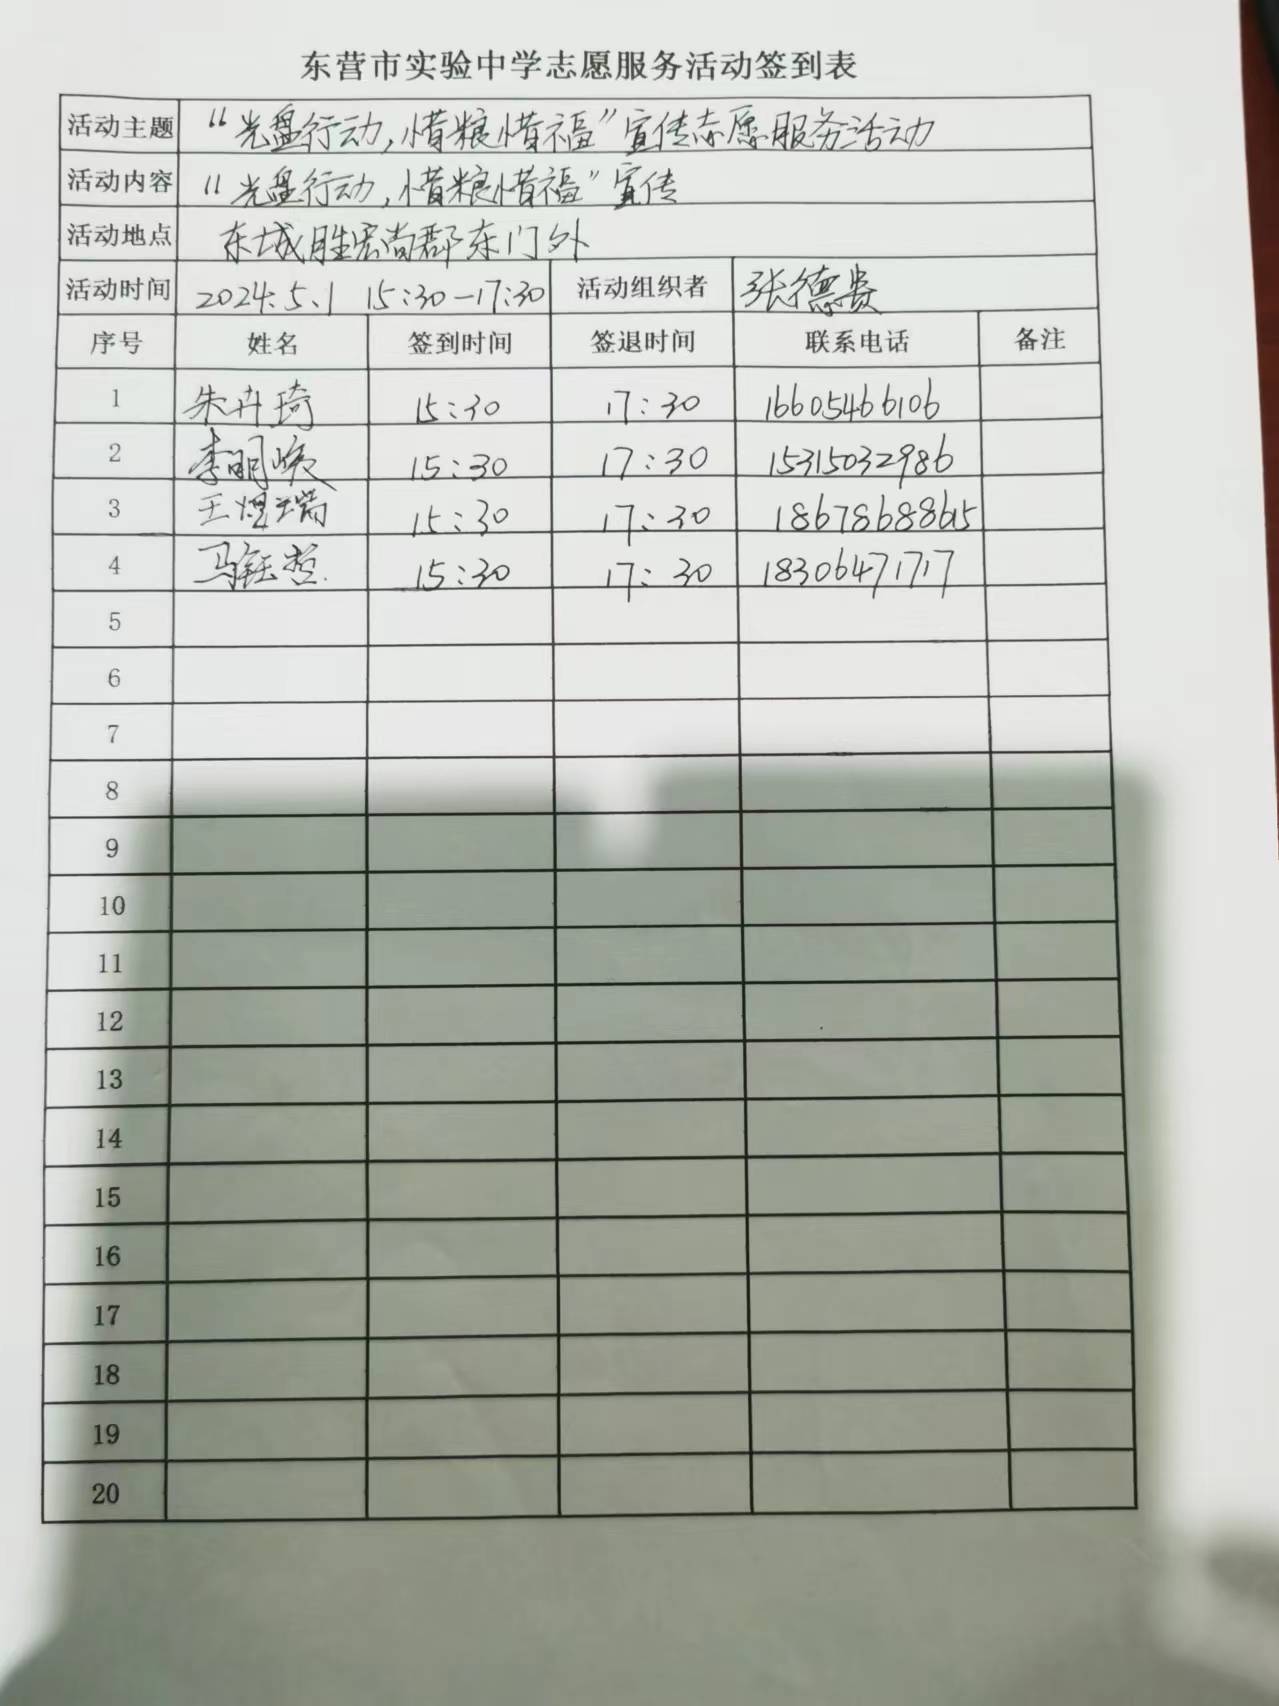 东营市实验中学志愿服务活动签到表
活动主题 “光盘行动,惜粮惜福”宣传志愿服务活动
活动内容 “光盘行动,惜粮惜福”宣传
活动地点 东城胜宏尚郡东门外
活动时间 2024.5.1 15:30-17:30 活动组织者 张德贵
序号 姓名 签到时间 签退时间 联系电话 备注
1 朱卉琦 15:30 17:30 16605466106
2 李明焕 15:30 17:30 15315032986
3 王煜瑞 15:30 17:30
4 马钰哲 15:30 17:30 18306471717
5
6
7
8
9
10
11
12
13
14
15
16
17
18
19
20